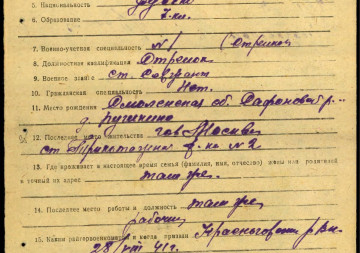 5. Национальность русский
6. Образование 7 кл.
7. Военно-учетная специальность №1 (Стрелков
8. Должностная квалификация Стрелок
9. Военное звание ст. Сержант
10. Гражданская специальность Нет.
11. Место рождения Смоленская об. Сафоновой р-
д. Пушкино
12. Последнее место жительства гор Москва
ст. ф-ка №2
13. Где проживает в настоящее время семья (фамилия, имя, отчество) жены или родителей
и точный их адрес там же.
14. Последнее место работы и должность там же,
рабочий
15. Каким райгорвоенкоматом и когда призван Красногорским рвк.
28/ 41 г.